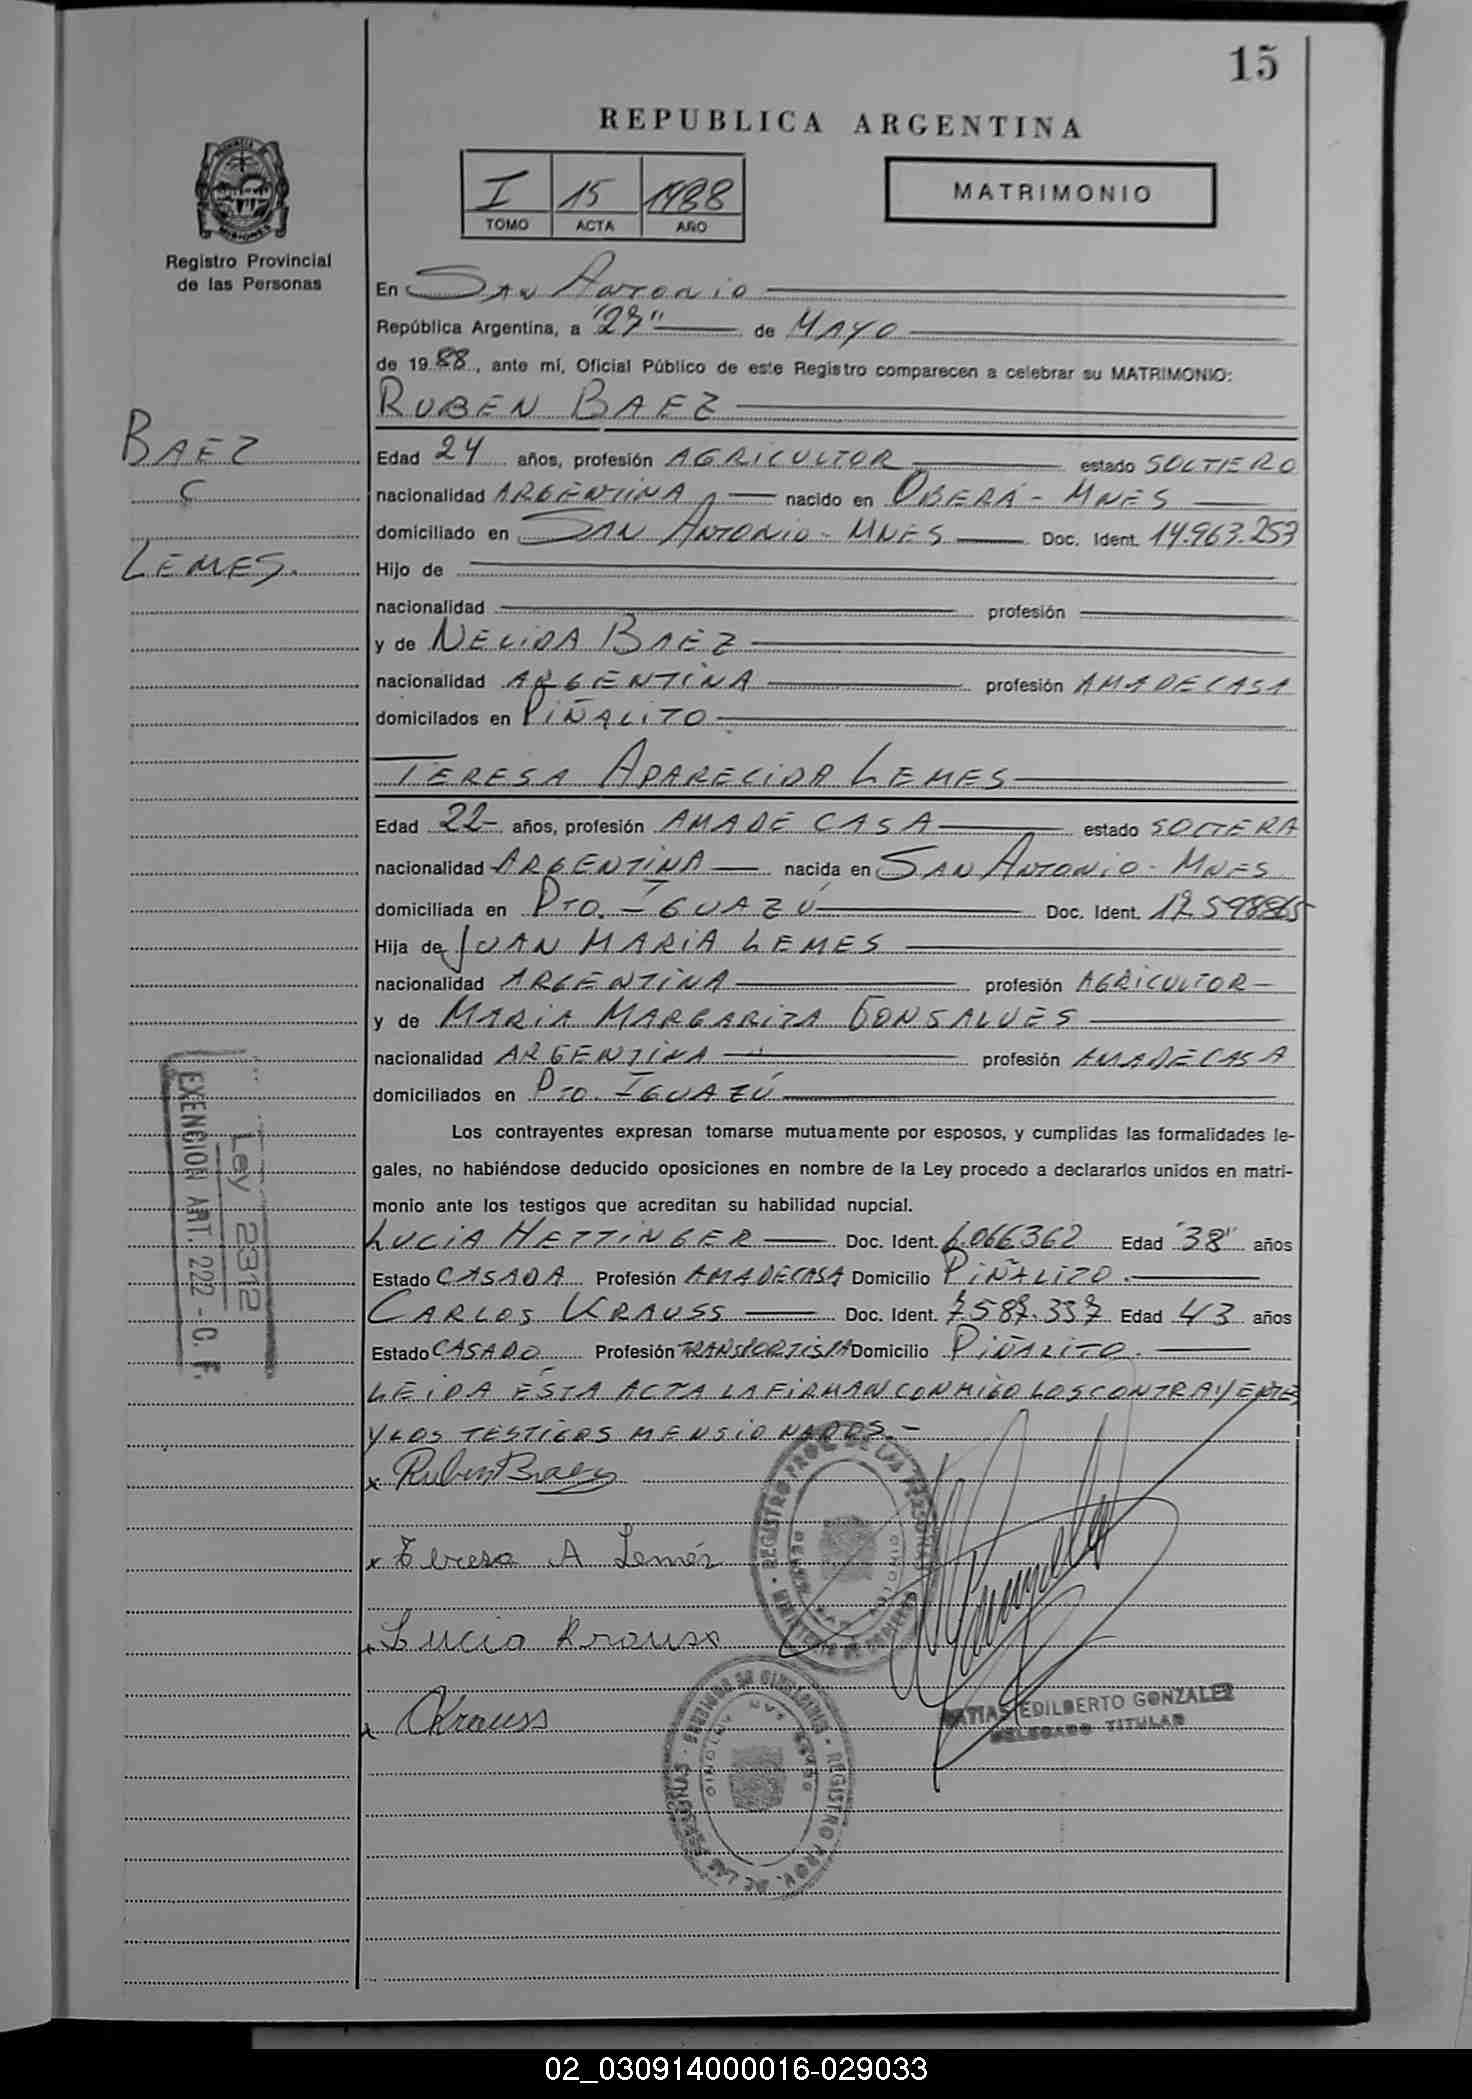 15
REPUBLICA ARGENTINA
I 15 1988
TOMO ACTA AÑO
MATRIMONIO
Registro Provincial
de las Personas
En San Antonio
República Argentina, a "27" de MAYO
de 1988, ante mí, Oficial Público de este Registro comparecen a celebrar su MATRIMONIO:
RUBEN BAEZ
BAEZ
C
LEMES.
Edad 24 años, profesión AGRICULTOR estado SOLTERO
nacionalidad ARGENTINA nacido en OBERÁ - MNES
domiciliado en SAN ANTONIO - MNES Doc. Ident. 14.963.253
Hijo de
nacionalidad profesión
y de NELIDA BAEZ
nacionalidad ARGENTINA profesión AMA DE CASA
domicilados en PIÑALITO
TERESA APARECIDA LEMES
Edad 22- años, profesión AMA DE CASA estado SOLTERA
nacionalidad ARGENTINA nacida en SAN ANTONIO - MNES
domiciliada en PTO. IGUAZÚ Doc. Ident.
Hija de JUAN MARIA LEMES
nacionalidad ARGENTINA profesión AGRICULTOR
y de MARIA MARGARITA GONSALVES
nacionalidad ARGENTINA profesión AMA DE CASA
domiciliados en PTO. IGUAZÚ
EXENCION ART. 222 - C. F.
Ley 2312
Los contrayentes expresan tomarse mutuamente por esposos, y cumplidas las formalidades le-
gales, no habiéndose deducido oposiciones en nombre de la Ley procedo a declararlos unidos en matri-
monio ante los testigos que acreditan su habilidad nupcial.
LUCIA HETTINGER Doc. Ident. 6.066362 Edad "38" años
Estado CASADA Profesión AMA DE CASA Domicilio PIÑALITO.
CARLOS KRAUSS Doc. Ident. 7.587.337 Edad 43 años
Estado CASADO Profesión TRANSPORTISTA Domicilio PIÑALITO.
LEIDA ESTA ACTA LA FIRMAN CONMIGO LOS CONTRAYENTES
Y LOS TESTIGOS MENSIONADOS.-
x Ruben Baez
x Teresa A Lemes
x Lucia Krauss
x CKrauss
MATIAS EDILBERTO GONZALEZ
DELEGADO TITULAR
02_030914000016-029033